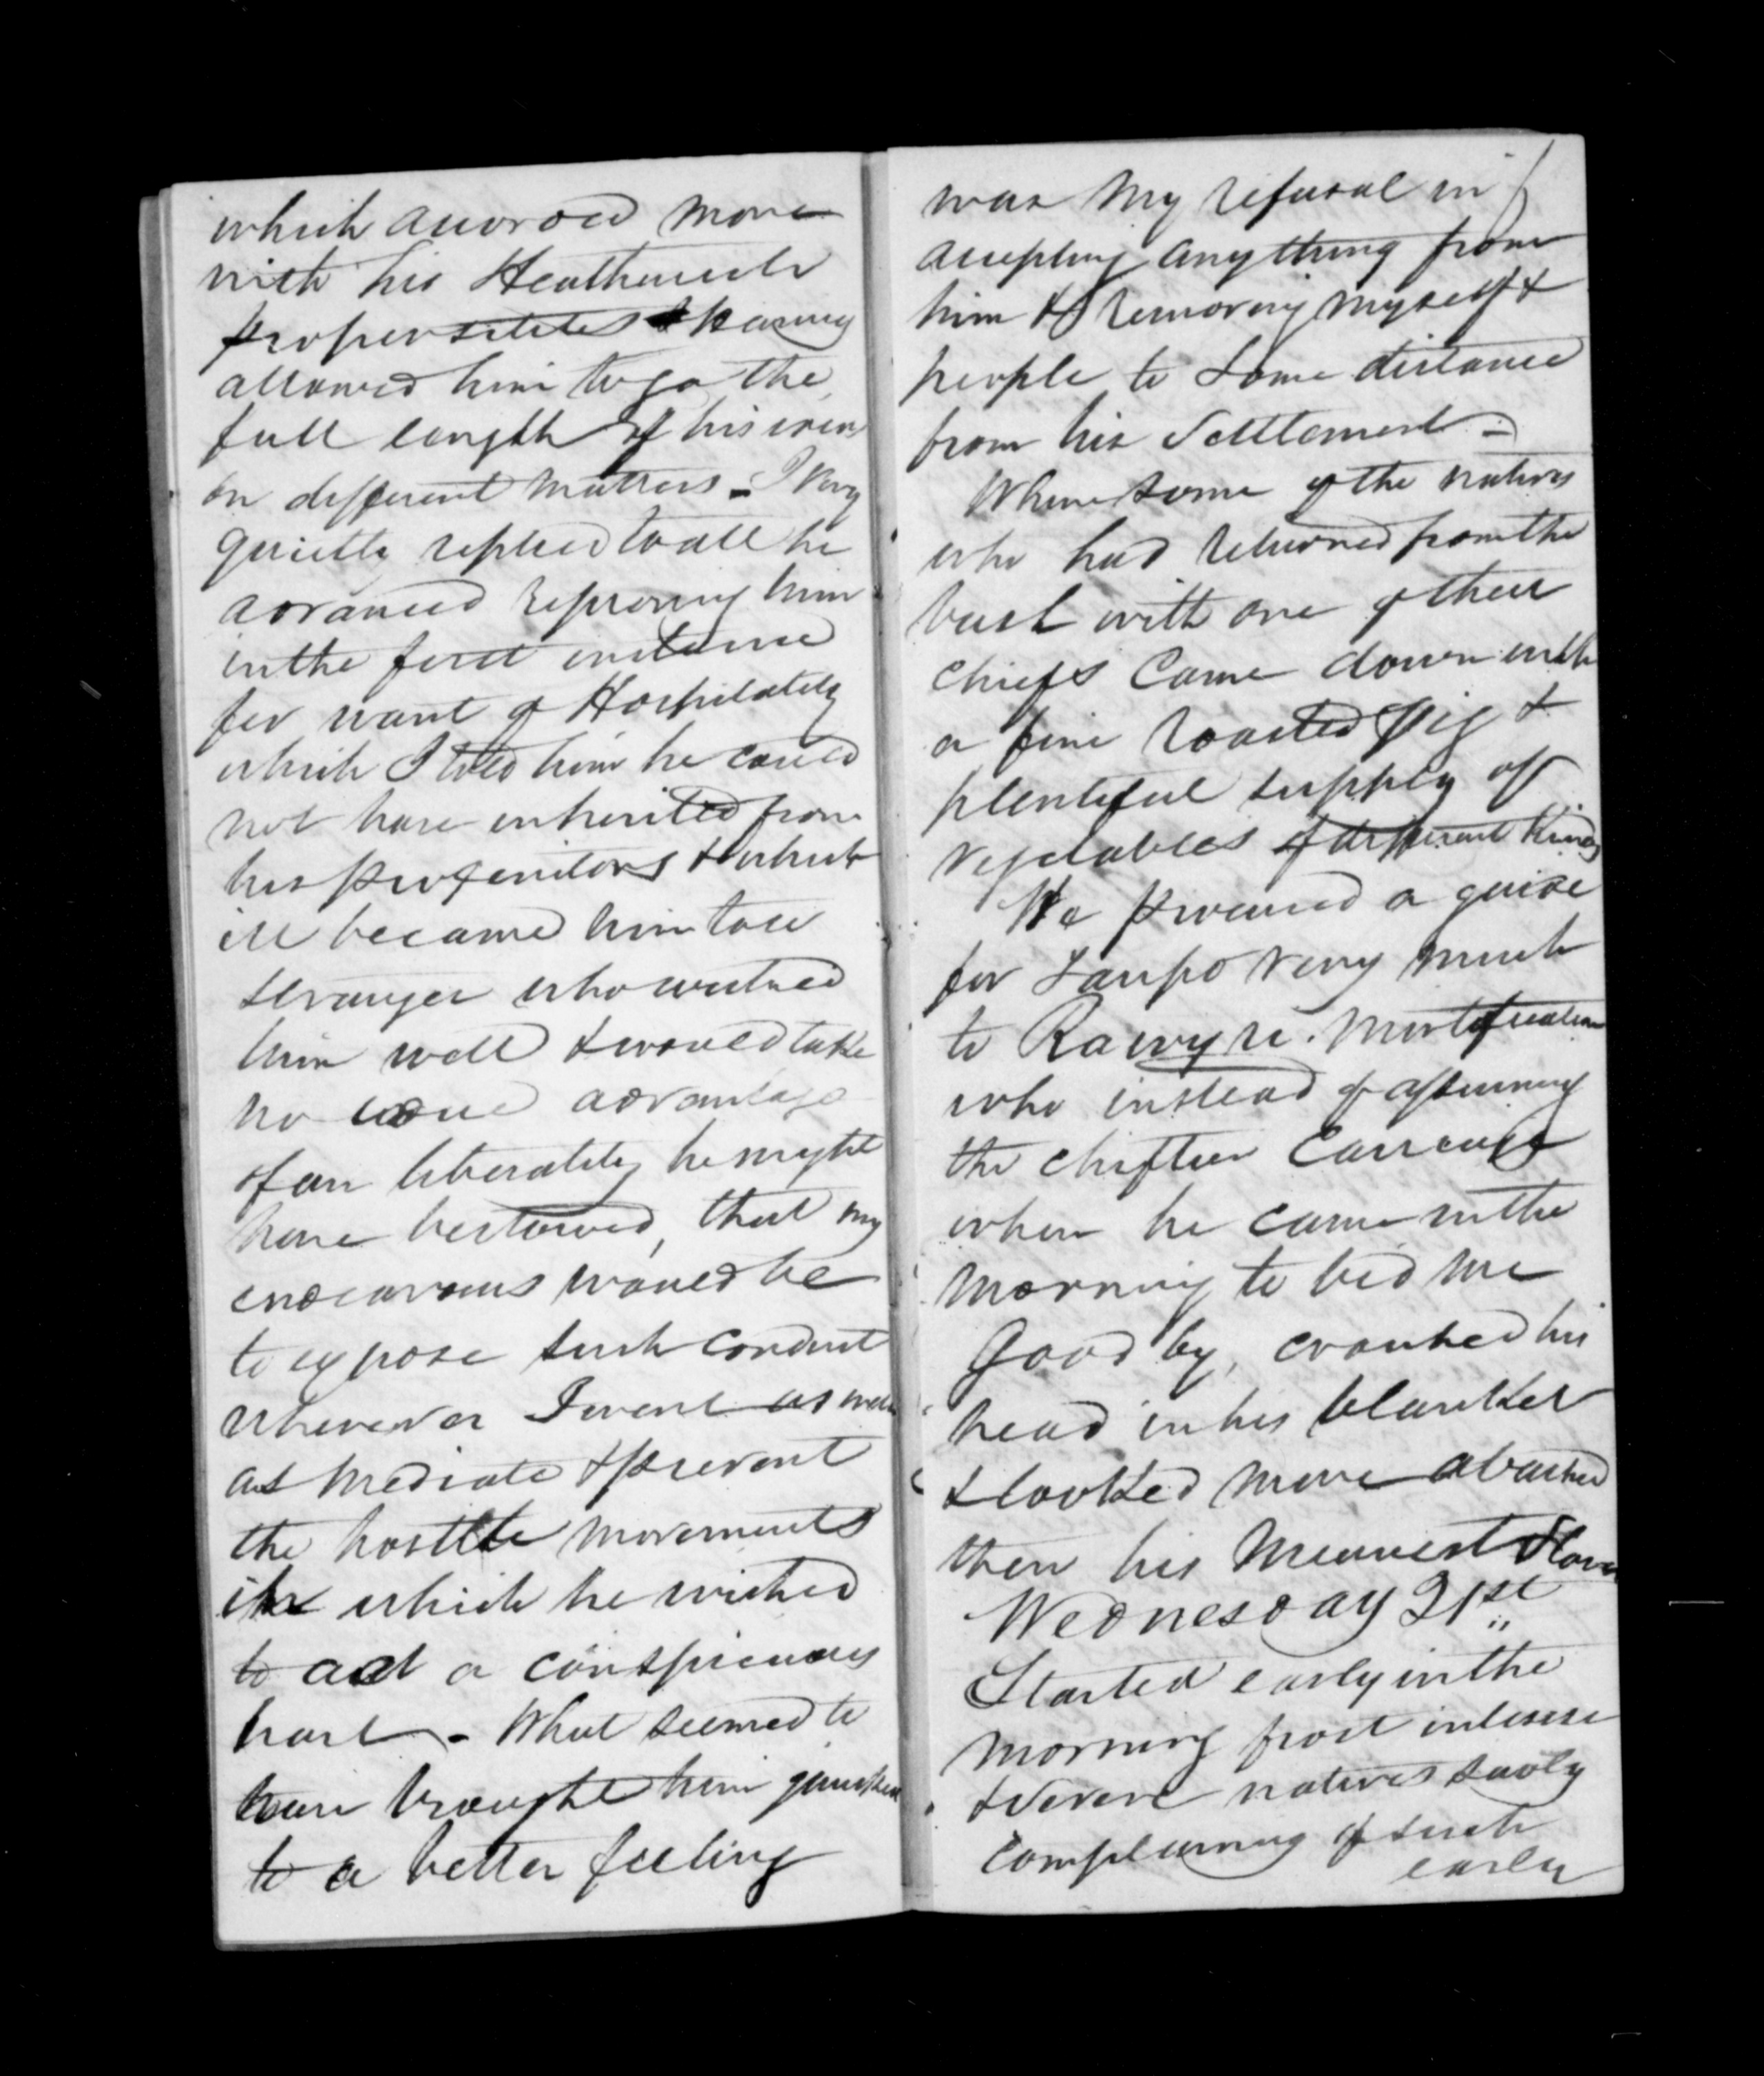 which accorded more
with his Heathenish
propensities & having
allowed him to go the
full length of his views
on different matters - I very
quietly replied to all he
advanced reproving him
in the first instance
for want of Hospitality
which I told him he could
not have inherited from
his progenitors & which
ill became him to a
stranger who wished
him well & would take
no undue advantage
of any liberality he might
have bestowed, that my
endeavours would be
to expose such conduct
wherever I went as well
as mediate & prevent
the hostile movements
in which he wished
to act a conspicuous
part - What seemed to
have brought him
to a better feeling
was my refusal in
accepting anything from
him & removing myself &
people to some distance
from his Settlement -
Where some of the natives
who had returned from the
bush with one of their
chiefs came down with
a fine roasted Pig &
plentiful supply of
vegetables of different kinds
We procured a guide
for Taupo very much
to mortification
who instead of assuming
the chiftian
when he came in the
morning to bid me
good by, crouched his
head in his blanket
& looked more abashed
then his meanest Slave
Wednesday 21st
Started early in the
morning frost intense
& severe natives sadly
complaining of such
early